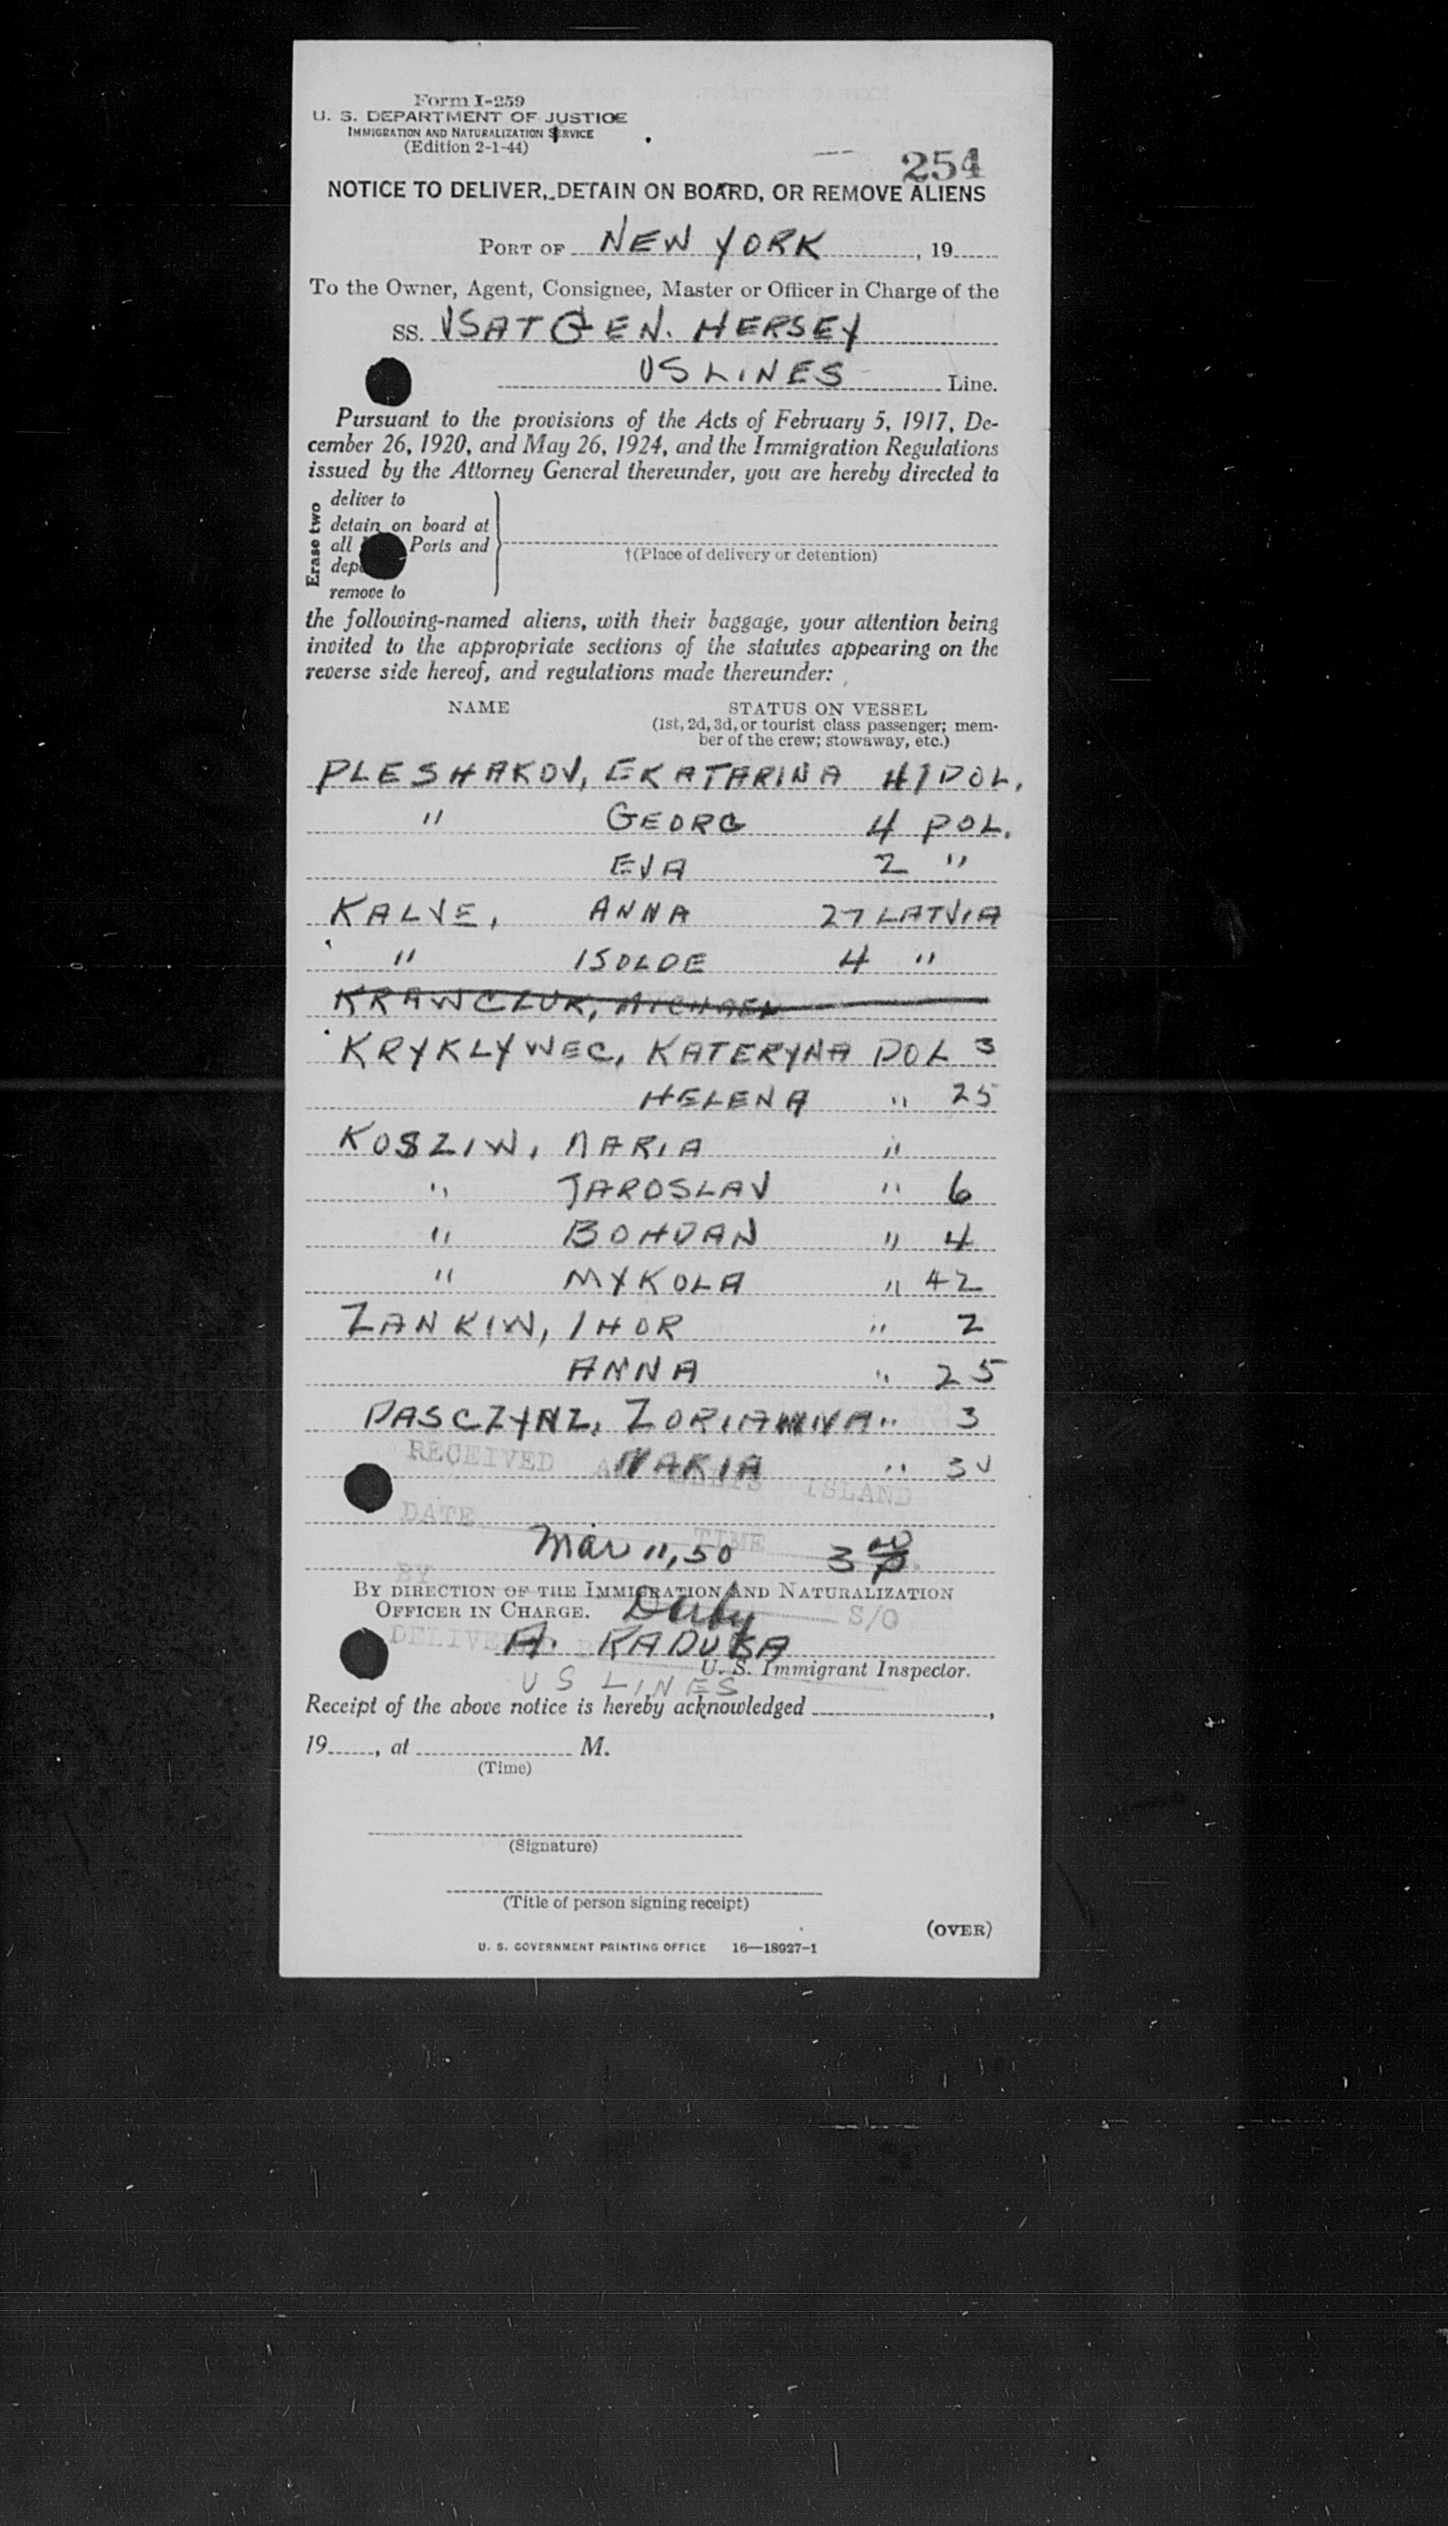 Form I-259
U. S. DEPARTMENT OF JUSTICE
IMMIGRATION AND NATURALIZATION SERVICE
(Edition 2-1-44)
254
NOTICE TO DELIVER, DETAIN ON BOARD, OR REMOVE ALIENS
PORT OF NEW YORK, 19
To the Owner, Agent, Consignee, Master or Officer in Charge of the
SS. USAT GEN. HERSEY
US LINES Line.
Pursuant to the provisions of the Acts of February 5, 1917, De-
cember 26, 1920, and May 26, 1924, and the Immigration Regulations
issued by the Attorney General thereunder, you are hereby directed to
Erase two
deliver to
detain on board at
all Ports and
remove to
†(Place of delivery or detention)
the following-named aliens, with their baggage, your attention being
invited to the appropriate sections of the statutes appearing on the
reverse side hereof, and regulations made thereunder:
NAME STATUS ON VESSEL
(1st, 2d, 3d, or tourist class passenger; mem-
ber of the crew; stowaway, etc.)
PLESHAKOV, EKATARINA 41 POL.
" GEORG 4 POL.
EVA 2 "
KALVE, ANNA 27 LATVIA
" ISOLDE 4 "
KRAWCZUK,
KRYKLYWEC, KATERYNA POL 3
HELENA " 25
KOSZIW, MARIA "
" JAROSLAV " 6
" BOHDAN " 4
" MYKOLA " 42
ZANKIW, IHOR " 2
ANNA " 25
" 3
MARIA "
RECEIVED AT ELLIS ISLAND
DATE TIME
Mar 11, 50 3 00 P.
BY
BY DIRECTION OF THE IMMIGRATION AND NATURALIZATION
OFFICER IN CHARGE.
S/O
DELIVERED BY
A. RADUBA
U. S. Immigrant Inspector.
US LINES
Receipt of the above notice is hereby acknowledged ,
19 , at M.
(Time)
(Signature)
(Title of person signing receipt)
(OVER)
U. S. GOVERNMENT PRINTING OFFICE 16—18927-1